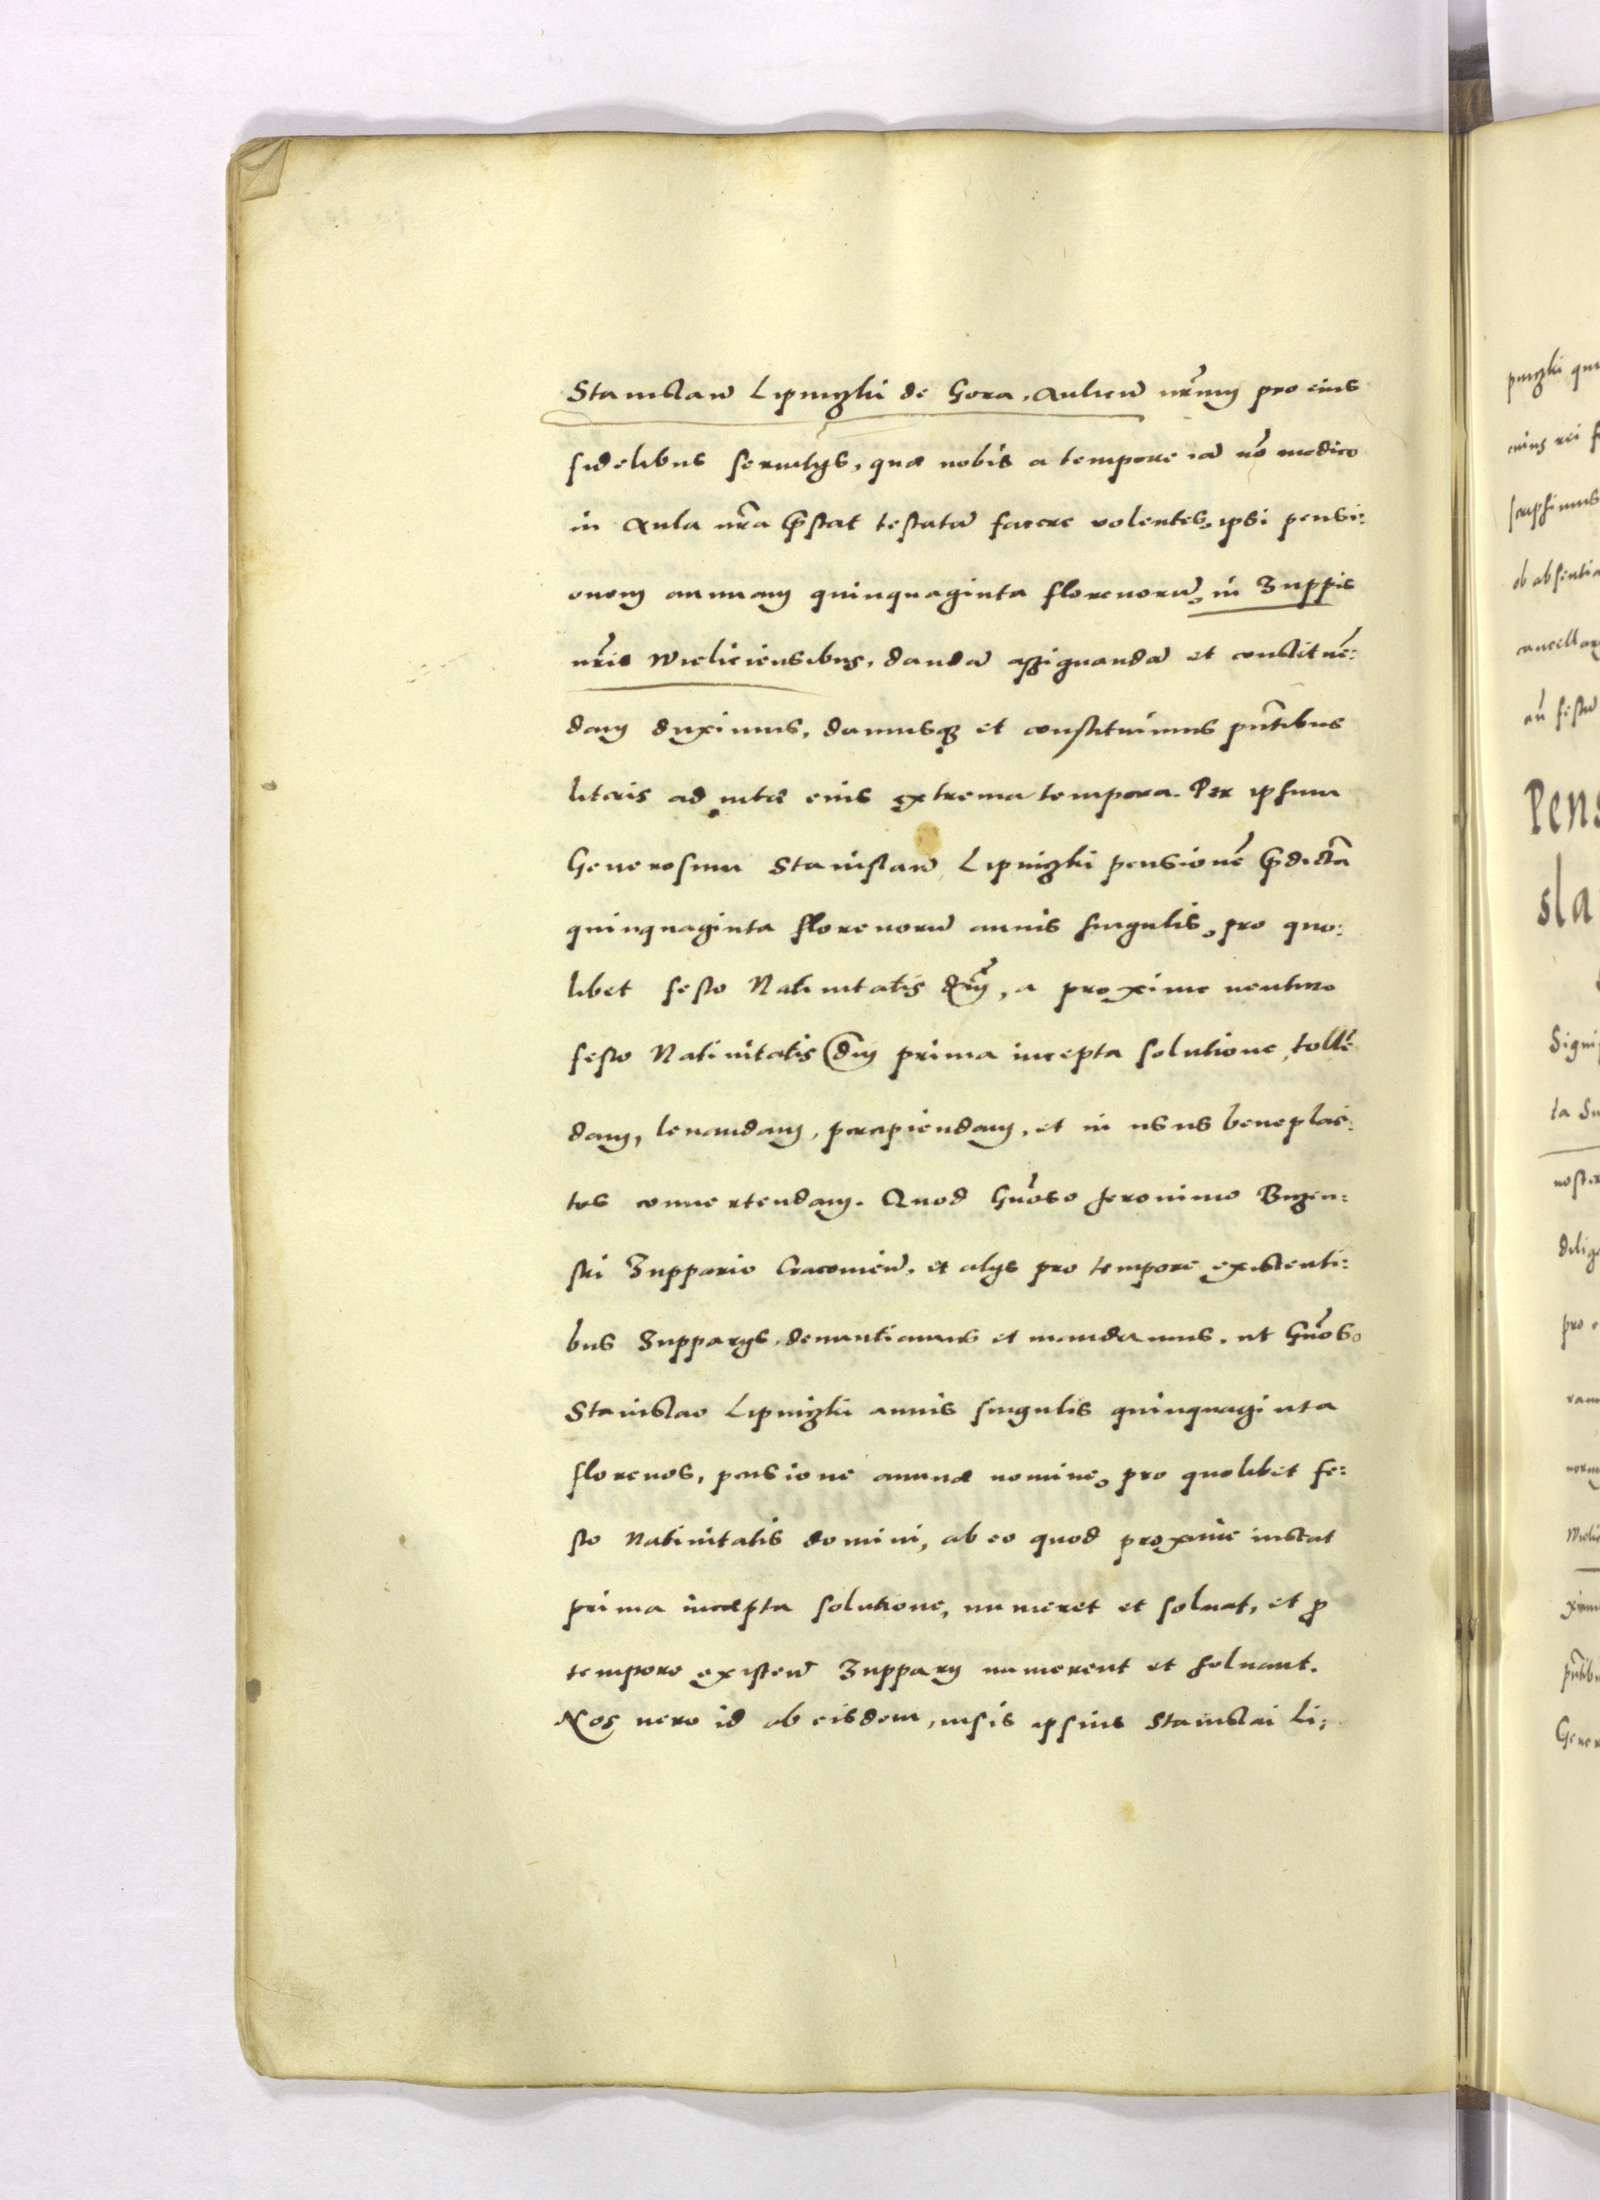 Stanislaũ Lipniczki de Gora, Aulicũ nr̃um pro eius
fidelibus seruitijs, quæ nobis a tempore iã nõ modico
in Aula nr̃a p̃stat testatũ facere volentes, ipsi pensi:
onem annuam quinquaginta florenorũ, in Zuppis
nr̃is Wieliciensibus, dandã assignandã et constituẽ:
dam duximus, damusq; et constituimus pn̄tibus
literis ad vitæ eius extrema tempora. Per ipsum
Generosum Stanislaũ Lipniczki pensionẽ p̃dictã
quinquaginta florenorũ annis singulis, pro quo:
libet festo Natiuitatis Dn̄i, a proxime venturo
festo Natiuitatis Dn̄i prima incepta solutione, tollẽ
dam, leuandam, percipiendam, et in usus beneplaci:
tos conuertendam. Quod Gn̄oso Jeronimo Bużen:
ski Zuppario Cracouieñ. et alijs pro tempore existenti:
bus Zupparijs, denuntiamus et mandamus, ut Gn̄oso
Stanislao Lipniczki annis singulis quinquaginta
florenos, pensione annuæ nomine, pro quolibet fe:
sto Natiuitatis domini, ab eo quod proxime instat
prima incæpta solutione, numeret et soluat, et ꝓ
tempore existeñ Zupparij numerent et soluant.
Nos vero id ab eisdem, visis ipsius Stanislai Li:
pniczki qui
cuius rei f
ob absentia
cancellar
Pens
sla
Signi
ta Su
noster
dilig
pro e
Wieli
pn̄tibu
Gener